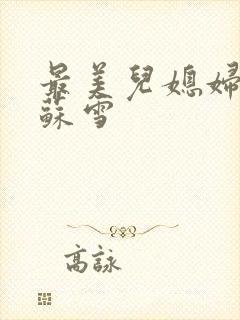 最美兒媳婦
蘇雪
高詠